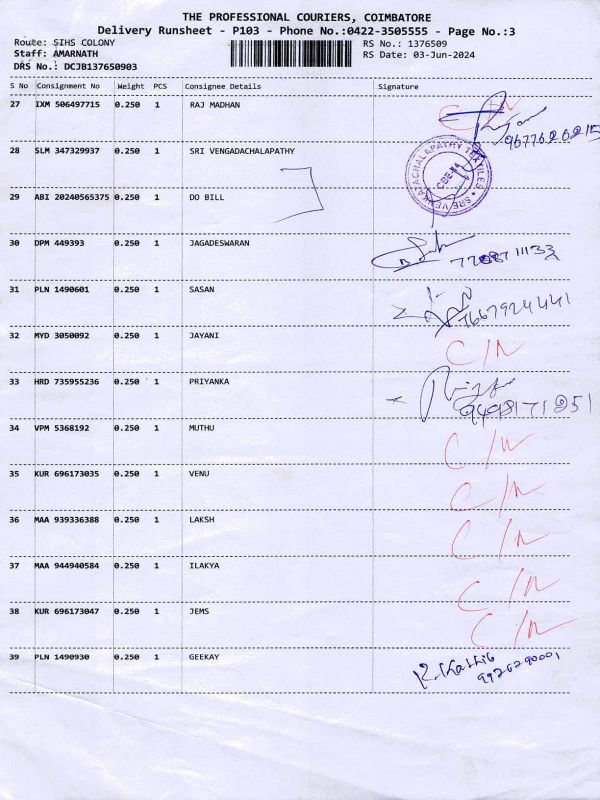 THE PROFESSIONAL COURIERS, COIMBATORE
Delivery Runsheet - P103 - Phone No.:0422-3505555 - Page No.:3
Route: SIHS COLONY RS No.: 1376509
Staff: AMARNATH RS Date: 03-Jun-2024
DRS No.: DCJB137650903
S No Consignment No Weight PCS Consignee Details Signature
27 IXM 506497715 0.250 1 RAJ MADHAN C/N
9677626215
28 SLM 347329937 0.250 1 SRI VENGADACHALAPATHY SREE VENKATACHALAPATHY TEXTILES CBE
29 ABI 20240565375 0.250 1 DO BILL
30 DPM 449393 0.250 1 JAGADESWARAN
31 PLN 1490601 0.250 1 SASAN 7667924441
32 MYD 3050092 0.250 1 JAYANI C/N
33 HRD 735955236 0.250 1 PRIYANKA
34 VPM 5368192 0.250 1 MUTHU C/N
35 KUR 696173035 0.250 1 VENU C/N
36 MAA 939336388 0.250 1 LAKSH C/N
37 MAA 944940584 0.250 1 ILAKYA C/N
38 KUR 696173047 0.250 1 JEMS C/N
39 PLN 1490930 0.250 1 GEEKAY